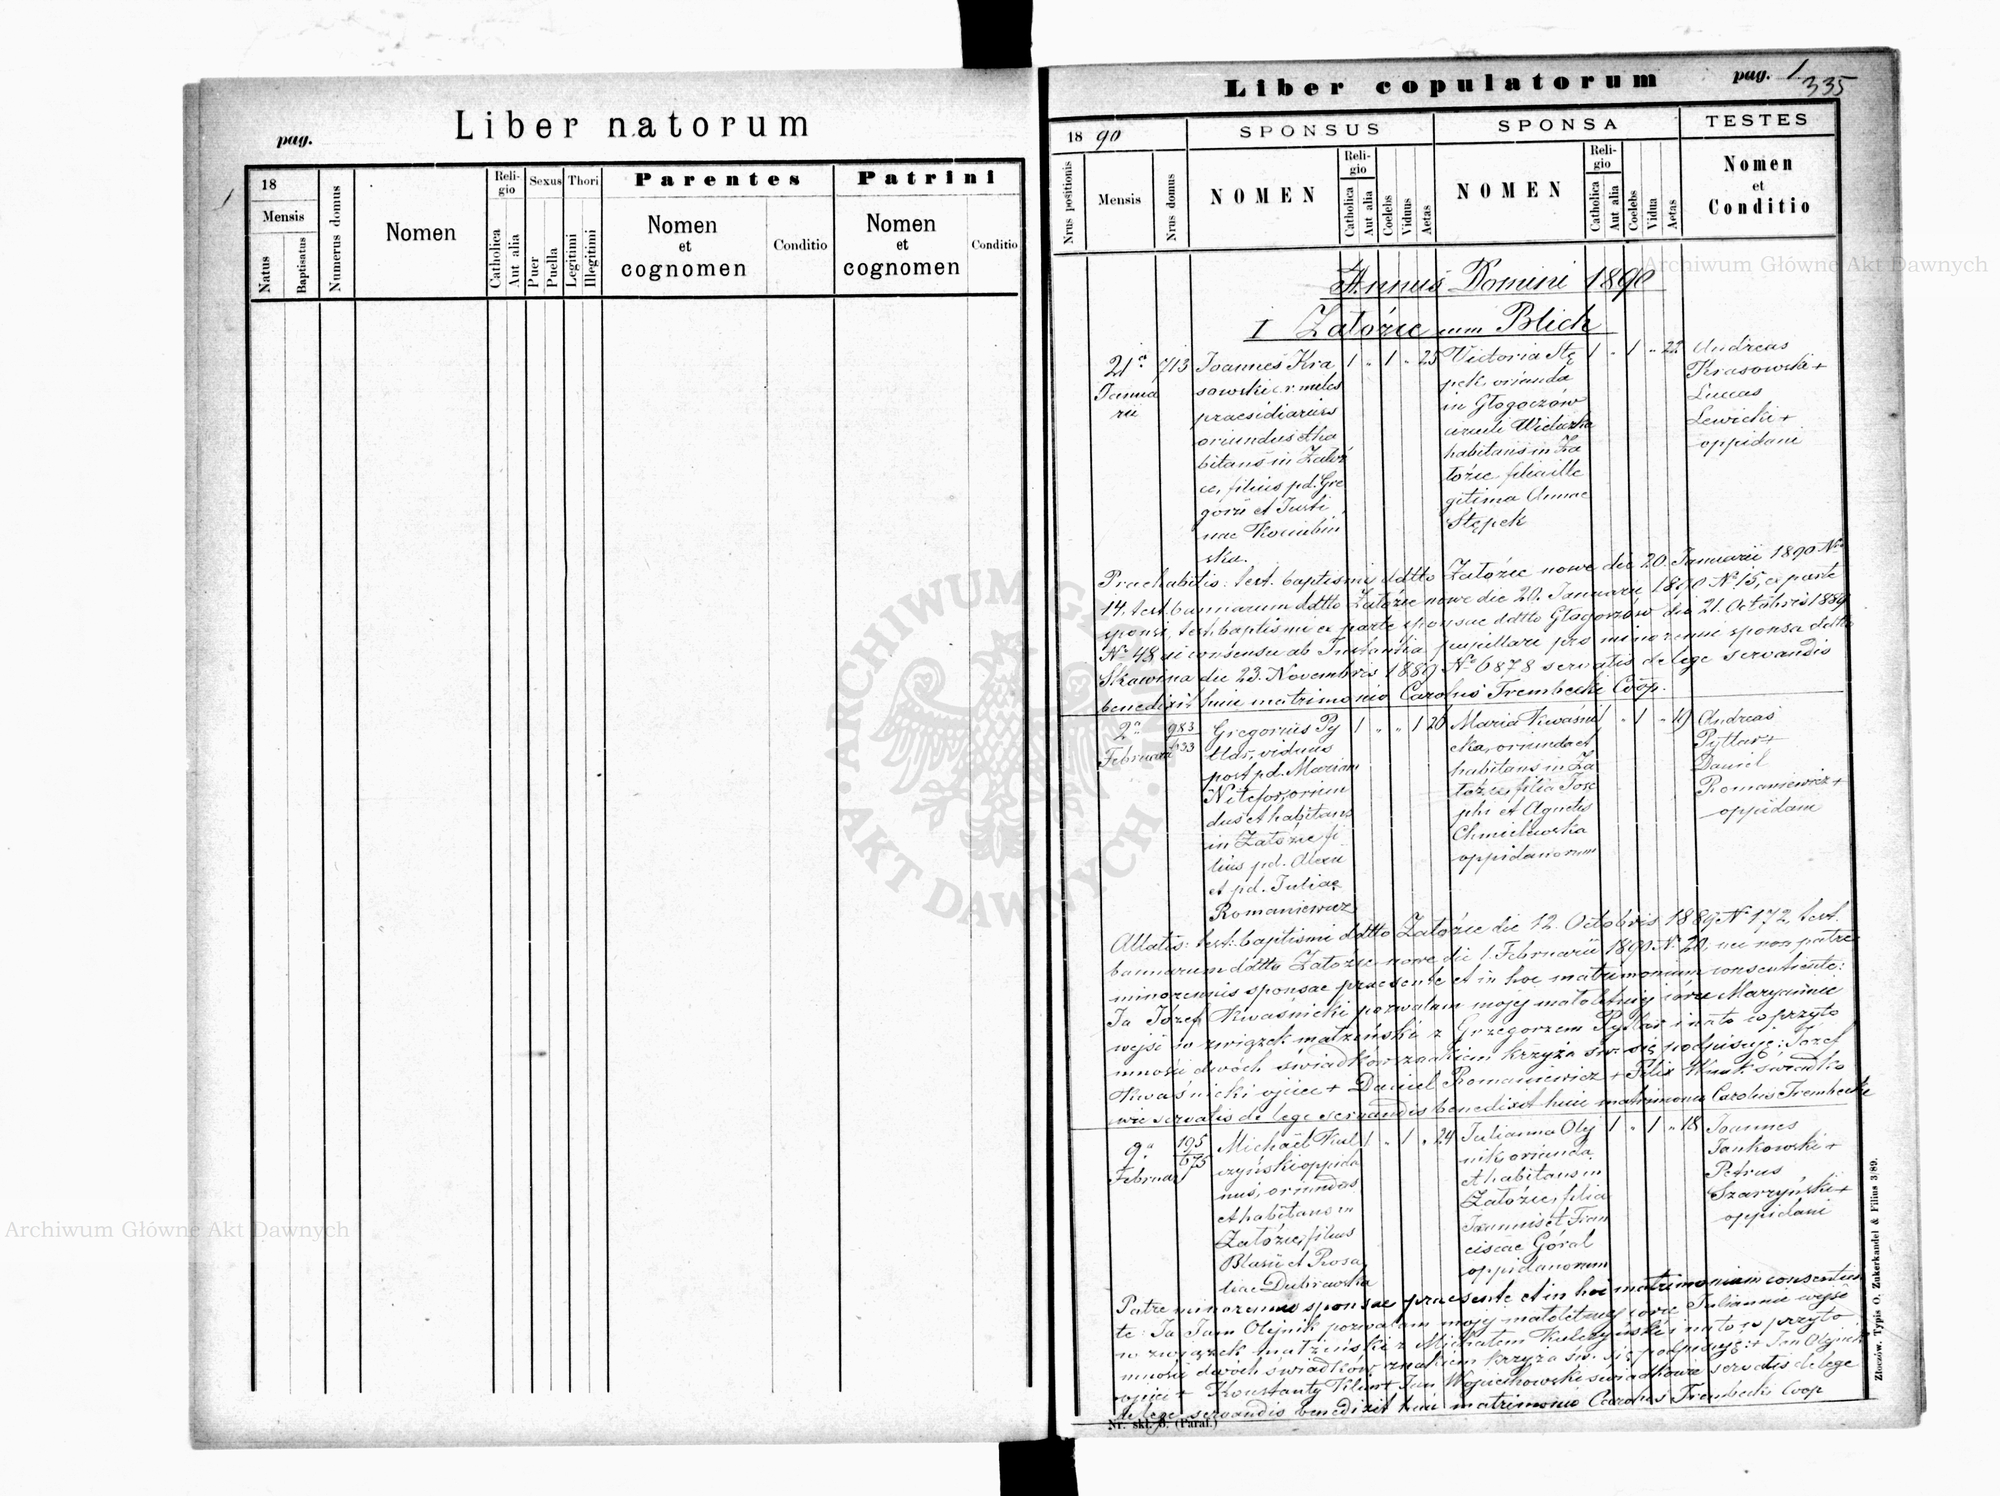 Liber natorum
pag.
1
18
Mensis
Natus
Baptisatus
Numerus domus
Nomen
Religio
Catholica
Aut alia
Sexus
Puer
Puella
Thori
Legitimi
Illegitimi
Parentes
Nomen
et
cognomen
Conditio
Patrini
Nomen
et
cognomen
Conditio
Liber copulatorum
pag. 1
335
1890
Nrus positionis
Mensis
Nrus domus
SPONSUS
NOMEN
Religio
Catholica
Aut alia
Coelebs
Viduus
Aetas
SPONSA
NOMEN
Religio
Catholica
Aut alia
Coelebs
Vidua
Aetas
TESTES
Nomen
et
Conditio
Annus Domini 1890
I Załoźce cum Blich
21a
Janua
rii
713
Joannes Kra
sowski c.r. miles
praesidiarius
oriundus et ha
bitans in Załoź
ce, filius pd. Gre
gorii et Justi
nae Kociubin
ska.
1 " 1 " 25
Victoria Stę
pek, oriunda
in Głogoczów
habitans in Za
łoźce, filia ille
gitima Annae
Stępek
1 " 1 " 22
Andreas
Krasowski +
Lucas
Lewicki +
oppidani
Praehabitis: test. baptismi ddtto Załoźce nowe die 20. Januarii 1890 No
14, test. bannorum ddtto Załoźce nowe die 20. Januarii 1890 No 15, ex parte
sponsi, test. baptismi ex parte sponsae ddtto Głogoczów die 21. Octobris 1889
No 48 ac consensu ab Instantia pupillari pro minorenni sponsa ddtto
Skawina die 23. Novembris 1889 No 6878 servatis de lege servandis
benedixit huic matrimonio Carolus Trembecki Coop.
2a
Februarii
983
633
Gregorius Py
tlar, viduus
post pd. Mariam
Nikefor, oriun
dus et habitans
in Załoźce fi
lius pd. Alexii
et pd. Juliae
Romaniewicz
1 " " 1 26
Maria Kwaśni
cka, oriunda et
habitans in Za
łoźce, filia Jose
phi et Agnetis
Chmielewska
oppidanorum
1 " 1 " 19
Andreas
Pytlar +
Daniel
Romaniewicz +
oppidani
Allatis: test. baptismi ddtto Załoźce die 12. Octobris 1889 No 172, test.
bannorum ddtto Załoźce nowe die 1. Februarii 1890 No 20, nec non patre
minorennis sponsae praesente et in hoc matrimonium consentiente:
Ja Józef Kwaśnicki pozwalam mojej małoletniej córce Maryannie
wejść w związek małżeński z Grzegorzem Pytlar i na to w przyto
mności dwóch świadków znakiem krzyża św. się podpisuję: Józef
Kwaśnicki ojciec + Daniel Romaniewicz + Felix Kluk świadko
wie servatis de lege servandis benedixit huic matrimonio Carolus Trembecki
9a
Februarii
195
675
Michaël Kul
czyński oppida
nus, oriundus
et habitans in
Załoźce, filius
Blasii et Rosa
liae Dubrawska
1 " 1 " 24
Julianna Olej
nik oriunda
et habitans in
Załoźce, filia
Joannis et Fran
ciscae Góral
oppidanorum
1 " 1 " 18
Joannes
Jankowski +
Petrus
Szarzyński +
oppidani
Patre minorennis sponsae praesente et in hoc matrimonium consentien
te: Ja Jan Olejnik pozwalam mojej małoletniej córce Juliannie wejść
w związek małżeński z Michałem Kulczyński i na to w przyto
mności dwóch świadków znakiem krzyża św. się podpisuję: + Jan Olejnik
ojciec + Konstanty Jan Wojciechowski świadkowie servatis de lege
de lege servandis benedixit huic matrimonio Carolus Trembecki Coop
Nr. skł. 3. (Paraf.)
Złoczów. Typis O. Zukerkandel & Filius 3/89.
ARCHIWUM GŁÓWNE AKT DAWNYCH
Archiwum Główne Akt Dawnych
Archiwum Główne Akt Dawnych